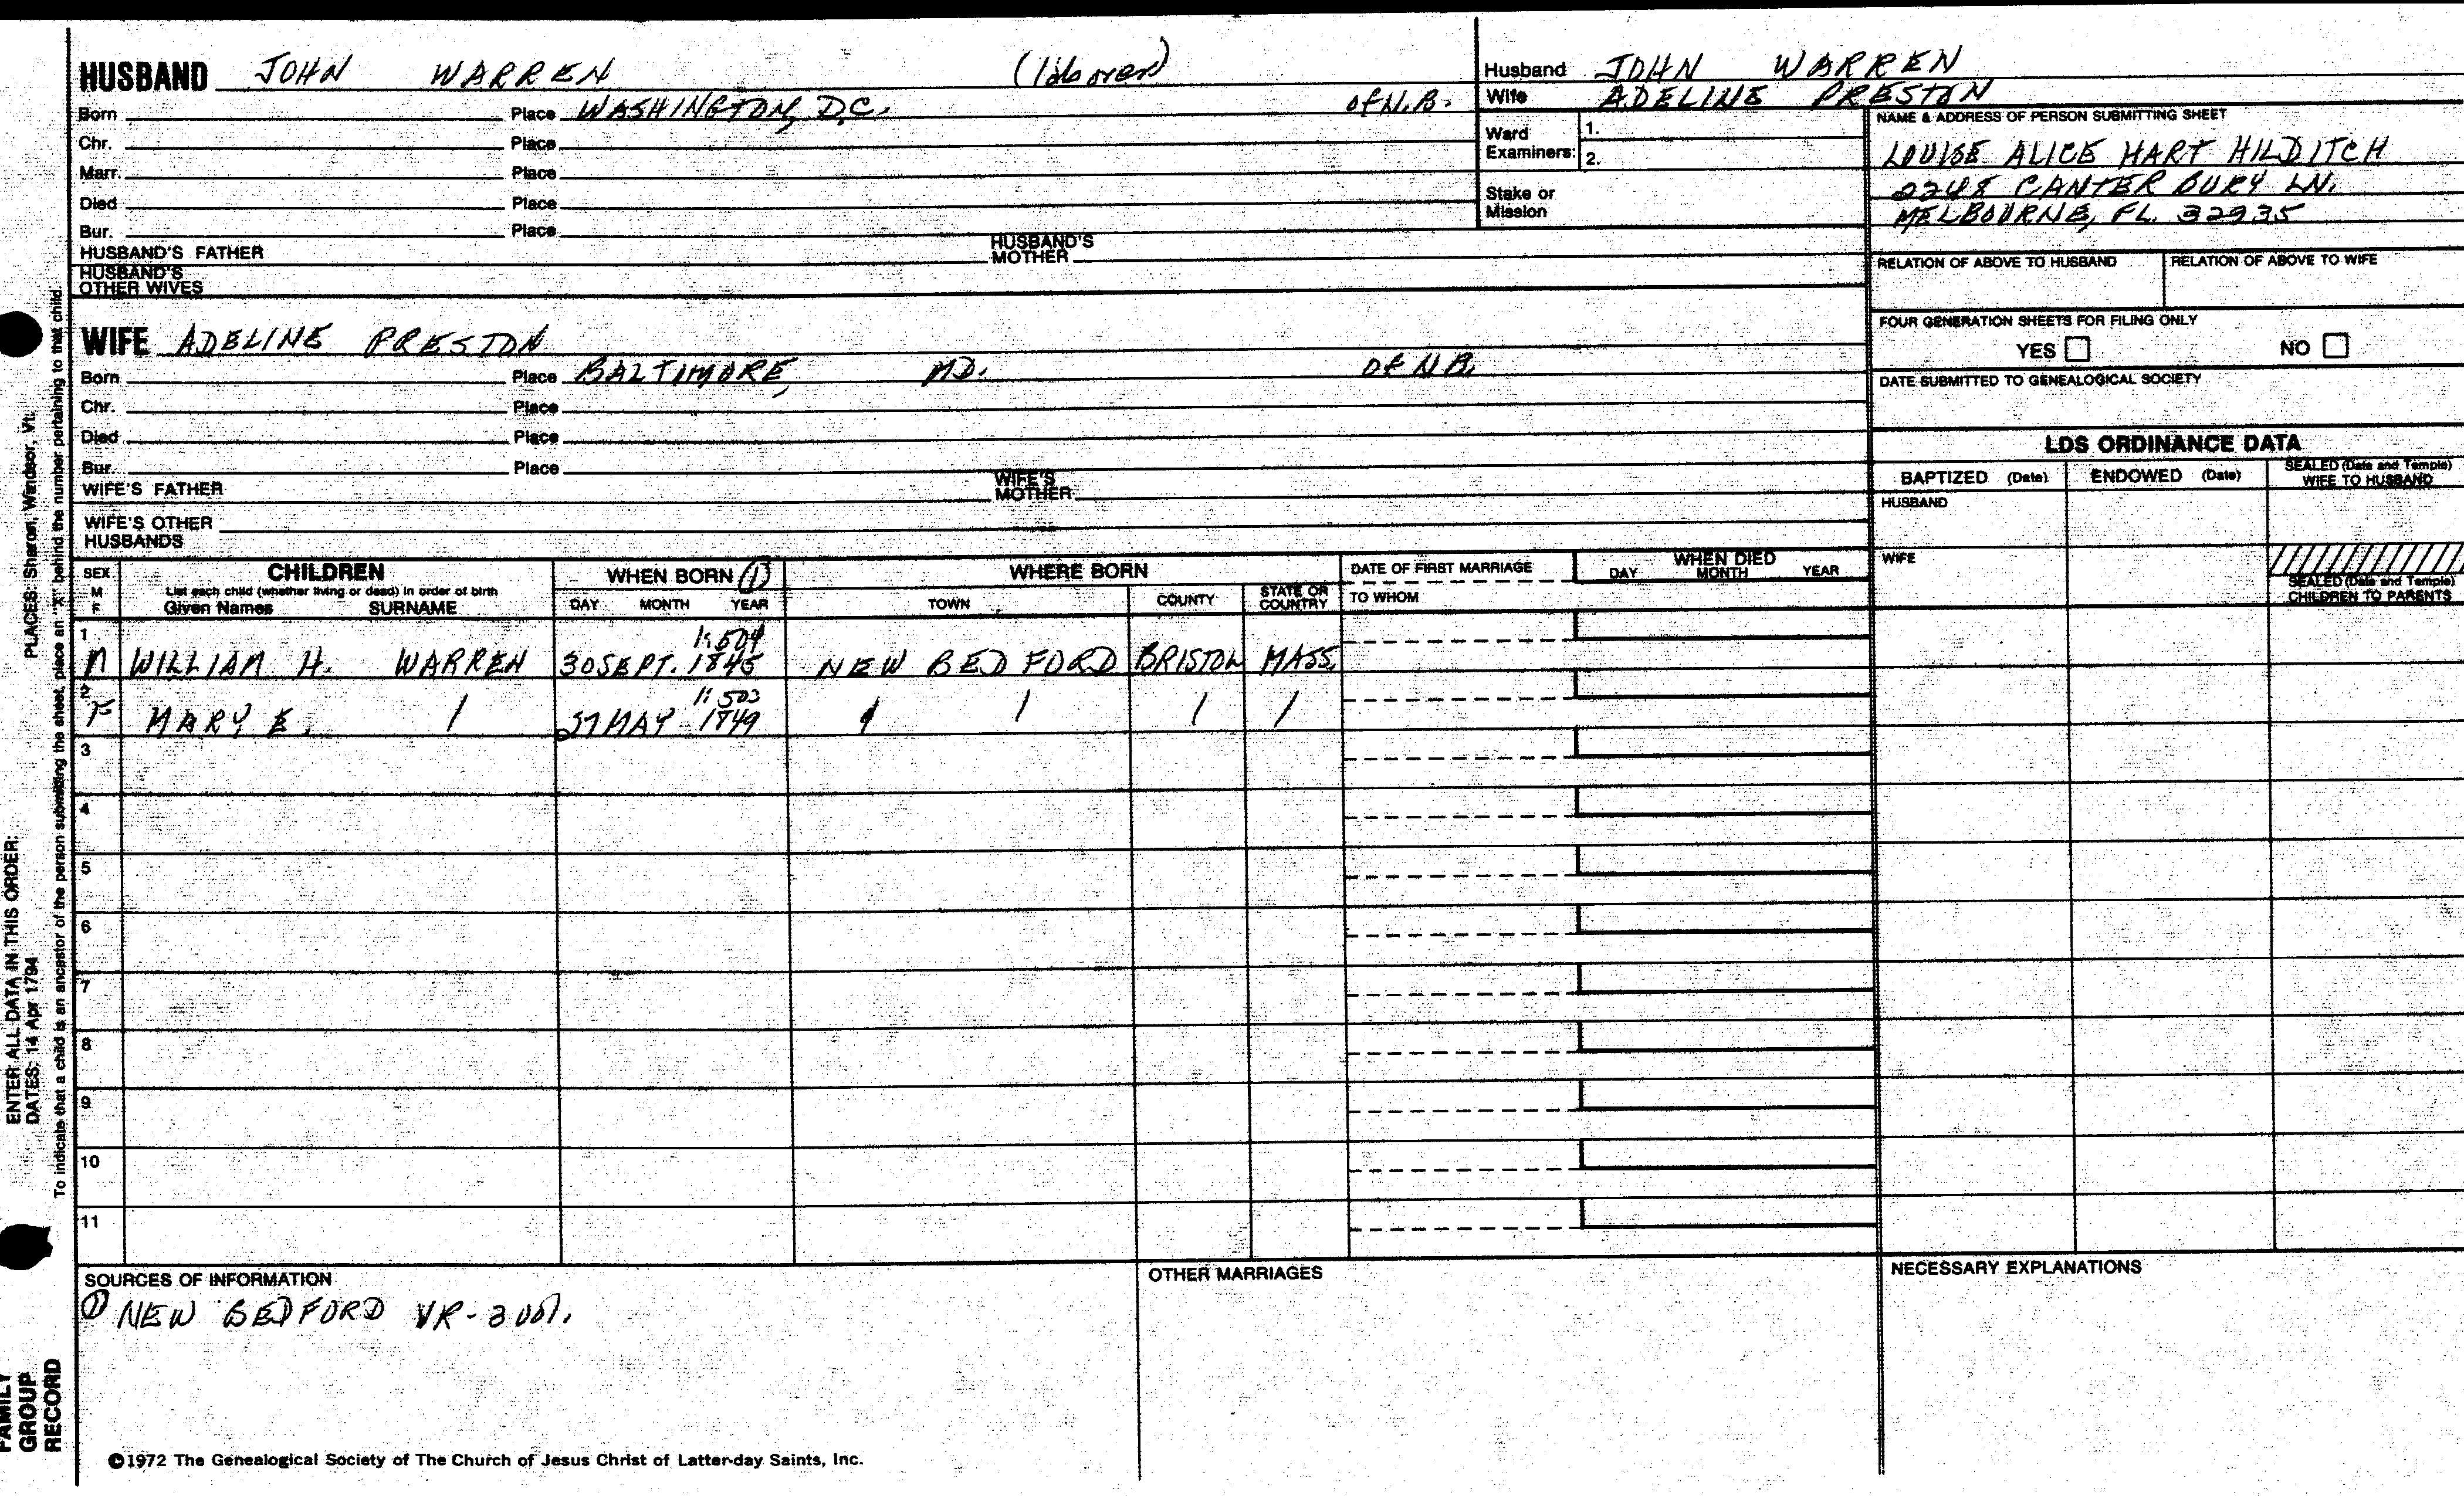 HUSBAND JOHN WARREN (laborer)
Born Place WASHINGTON, D.C. of N.B.
Chr. Place
Marr. Place
Died Place
Bur. Place
HUSBAND'S FATHER HUSBAND'S MOTHER
HUSBAND'S OTHER WIVES
Husband JOHN WARREN
Wife ADELINE PRESTON
Ward Examiners: 1.
2.
Stake or Mission
NAME & ADDRESS OF PERSON SUBMITTING SHEET
LOUISE ALICE HART HILDITCH
2248 CANTERBURY LN.
MELBOURNE, FL. 32935
RELATION OF ABOVE TO HUSBAND RELATION OF ABOVE TO WIFE
FOUR GENERATION SHEETS FOR FILING ONLY
YES NO
DATE SUBMITTED TO GENEALOGICAL SOCIETY
WIFE ADELINE PRESTON
Born Place BALTIMORE, MD. of N.B.
Chr. Place
Died Place
Bur. Place
WIFE'S FATHER WIFE'S MOTHER
WIFE'S OTHER HUSBANDS
LDS ORDINANCE DATA
BAPTIZED (Date) ENDOWED (Date) SEALED (Date and Temple) WIFE TO HUSBAND
HUSBAND
WIFE
SEALED (Date and Temple) CHILDREN TO PARENTS
SEX M F
CHILDREN
List each child (whether living or dead) in order of birth
Given Names SURNAME
WHEN BORN (1)
DAY MONTH YEAR
WHERE BORN
TOWN COUNTY STATE OR COUNTRY
DATE OF FIRST MARRIAGE
TO WHOM
WHEN DIED
DAY MONTH YEAR
1 1:504
M WILLIAM H. WARREN 30 SEPT. 1845 NEW BEDFORD BRISTOL MASS.
2 1:503
F MARY E. / 27 MAY 1849 / / / /
3
4
5
6
7
8
9
10
11
SOURCES OF INFORMATION
① NEW BEDFORD VR-3 vol.
OTHER MARRIAGES
NECESSARY EXPLANATIONS
©1972 The Genealogical Society of The Church of Jesus Christ of Latter-day Saints, Inc.
FAMILY GROUP RECORD
ENTER ALL DATA IN THIS ORDER:
DATES: 14 Apr 1794 PLACES: Sharon, Windsor, Vt.
To indicate that a child is an ancestor of the person submitting the sheet, place an "X" behind the number pertaining to that child.